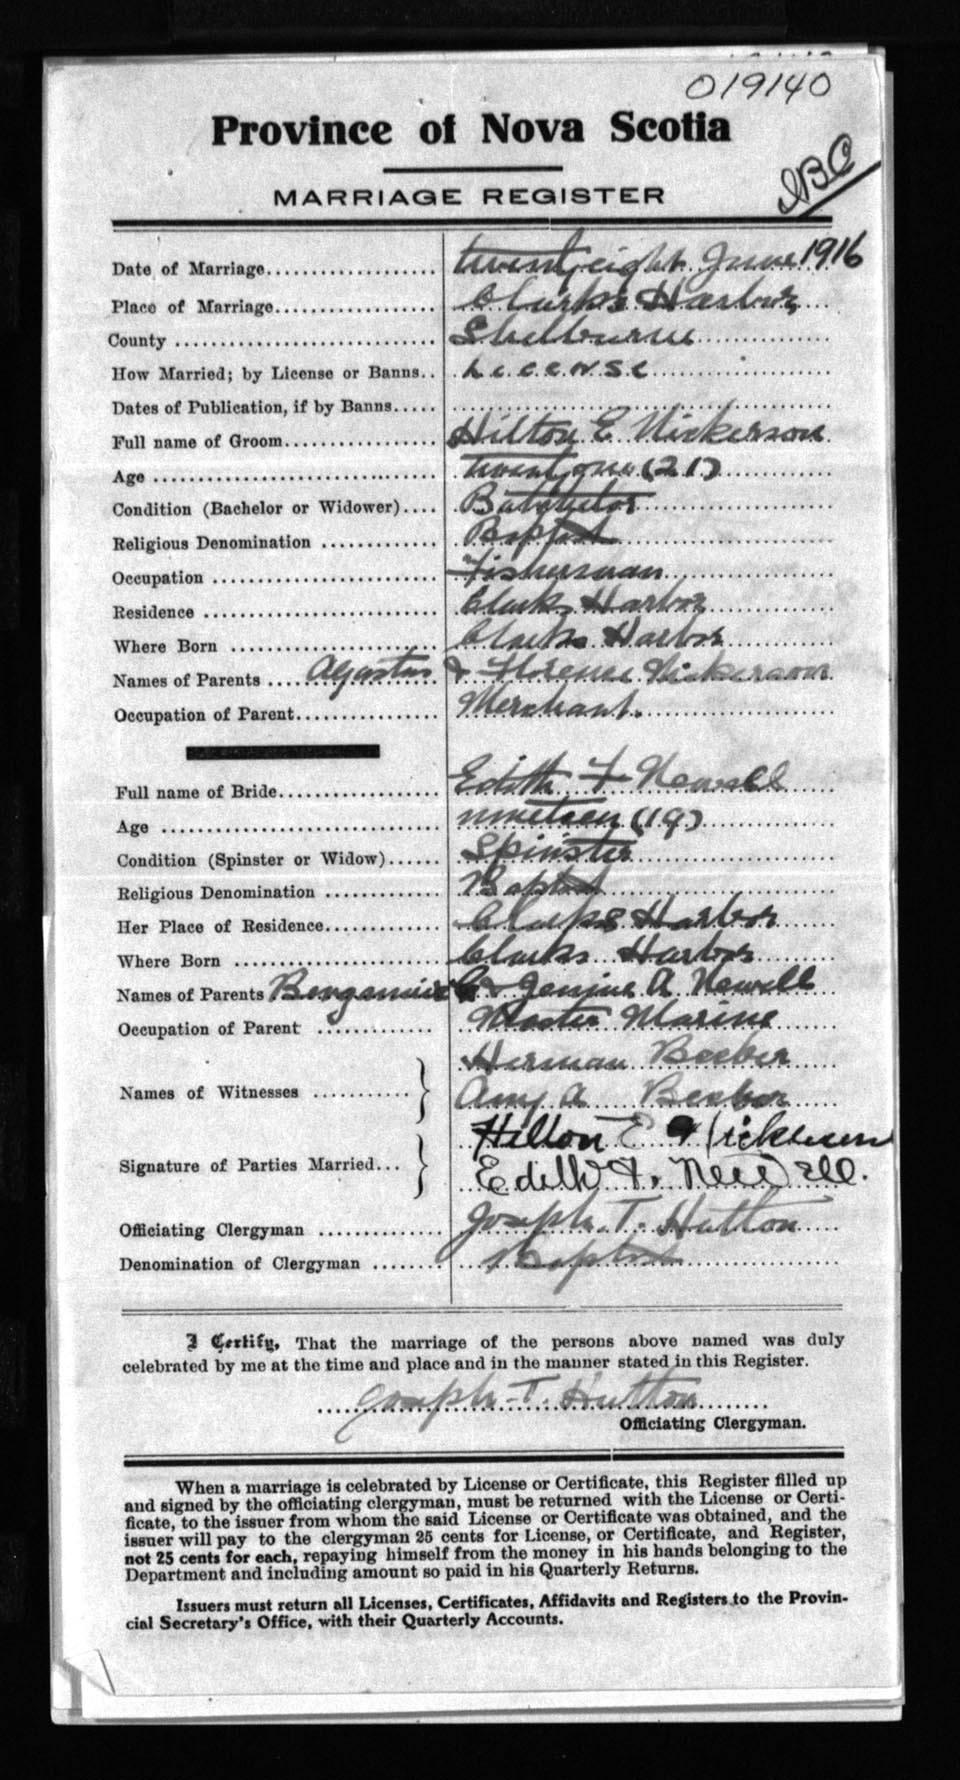 019140
Province of Nova Scotia
MARRIAGE REGISTER
Date of Marriage.................... twenty eight June 1916
Place of Marriage................... Clark's Harbor
County .............................. Shelburne
How Married; by License or Banns.. License
Dates of Publication, if by Banns.....
Full name of Groom.................. Hilton E Nickerson
Age ................................. twenty one (21)
Condition (Bachelor or Widower).... Batchelor
Religious Denomination ............. Baptist
Occupation .......................... Fisherman
Residence ........................... Clarks Harbor
Where Born ........................ Clarks Harbor
Names of Parents .... Agustus & Florence Nickerson
Occupation of Parent................ Merchant.
Full name of Bride.................. Edith F Newell
Age ................................ nineteen (19)
Condition (Spinster or Widow)...... Spinster
Religious Denomination .............. Baptist
Her Place of Residence............. Clarks Harbor
Where Born ........................ Clarks Harbor
Names of Parents Bengamine & Jenine A Newell
Occupation of Parent .............. Master Marine
Names of Witnesses ........... Herman Beeber
Amy A Beeber
Signature of Parties Married... Hilton E Nickerson
Edith F. Newell.
Officiating Clergyman .............. Joseph T. Hutton
Denomination of Clergyman ........ Baptist
I Certify, That the marriage of the persons above named was duly
celebrated by me at the time and place and in the manner stated in this Register.
Joseph T. Hutton
Officiating Clergyman.
When a marriage is celebrated by License or Certificate, this Register filled up
and signed by the officiating clergyman, must be returned with the License or Certi-
ficate, to the issuer from whom the said License or Certificate was obtained, and the
issuer will pay to the clergyman 25 cents for License, or Certificate, and Register,
not 25 cents for each, repaying himself from the money in his hands belonging to the
Department and including amount so paid in his Quarterly Returns.
Issuers must return all Licenses, Certificates, Affidavits and Registers to the Provin-
cial Secretary's Office, with their Quarterly Accounts.